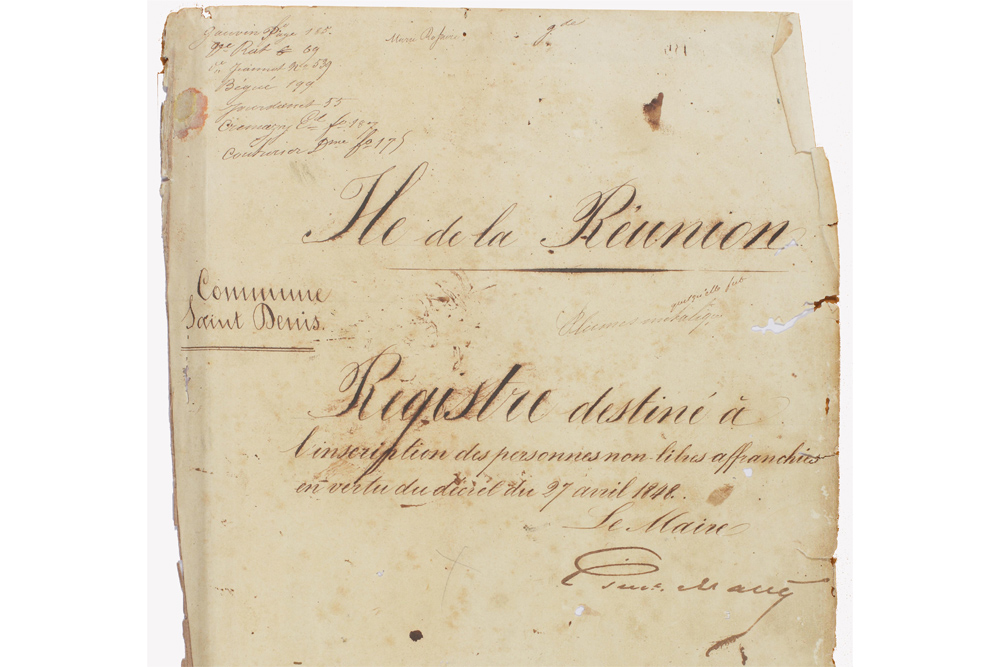 Gauvin Page 185.
Rat 69
Jeannot No 539
Bégué 199
Jourdanet 55
Cremazy fo 187
Couturier Dme fo 175
Marie
gde
Ile de la Réunion
Commune
Saint Denis.
qu'elle fut
Plumes métalliq
Régistre destiné à
l'inscription des personnes non libres affranchies
en vertu du décret du 27 avril 1848.
Le Maire